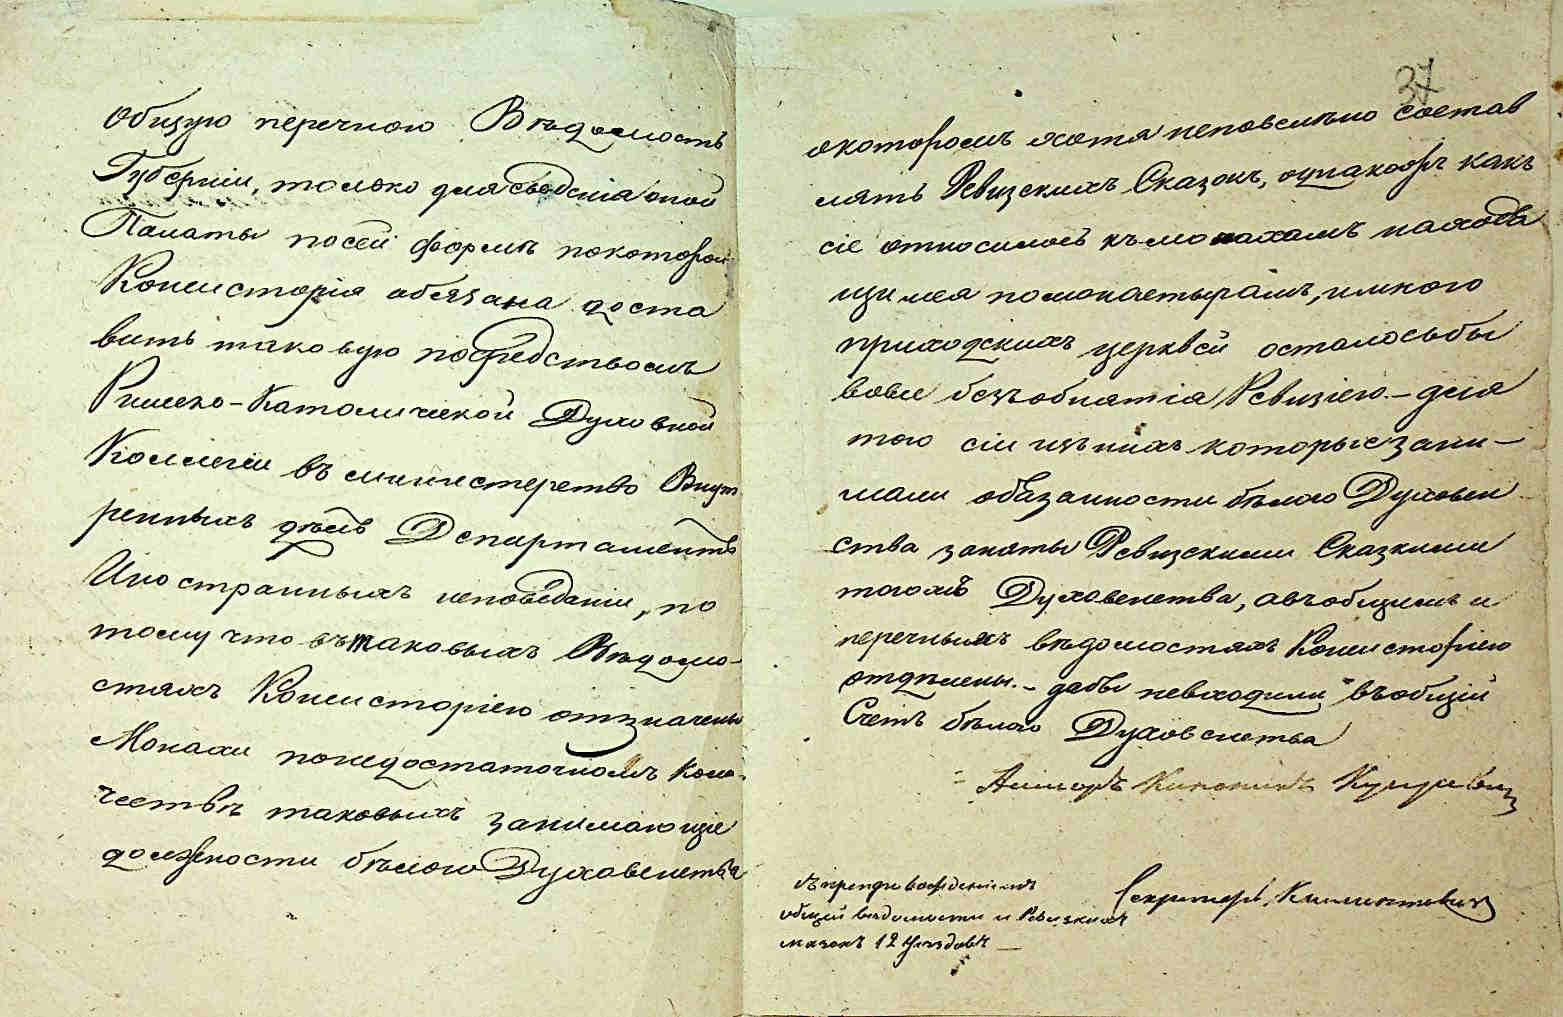 общую перечною Вѣдомость
Губерніи, только для сведенія оной
Палаты по сей формѣ по которой
Консисторія обязана доста
вить таковую посредствомъ
Римско-Католической Духовной
Коллегіи въ министерство Внут
ренныхъ дѣлъ Департаментъ
Иностранныхъ исповеданіи, по
тому что въ таковыхъ Вѣдомо-
стяхъ Консисторіею отзначены
Монахи по недостаточномъ коли-
чествѣ таковыхъ занимающіе
должности бѣлого Духовенства
37
о которомъ хотя неповелѣно состав
лять Ревизскихъ Сказокъ, однакожъ какъ
сіе относилось къ монахамъ находя
щимся по монастырамъ, и много
приходскихъ церквей осталось бы
вовсе безъ обнятія Ревизіею. - для
того сіи изъ нихъ которые зани-
мали обязанности бѣлого Духовен
ства заняты Ревизскими Сказками
того жъ Духовенства, а въ общимъ и
перечныхъ вѣдомостяхъ Консисторіею
отдѣлены. - дабы невходили въ общій
Счетъ бѣлого Духовенства
Каноникъ
Секретарь
съ препровожденіемъ
общей вѣдомости и Ревизкихъ
сказокъ 12 Уѣздовъ